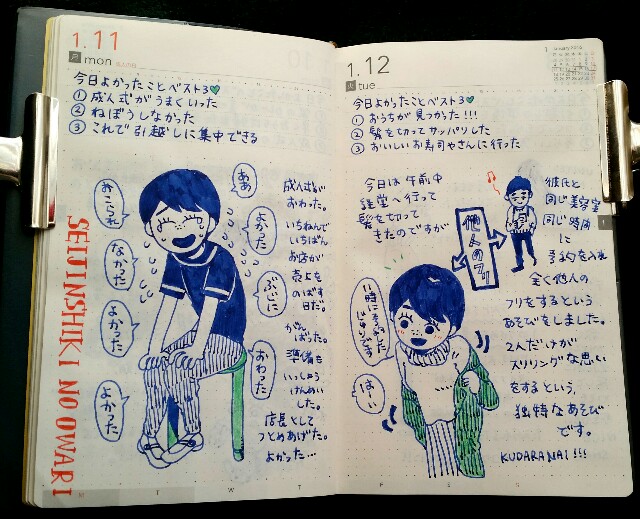 1.11
月 mon
今日よかったことベスト3♥
① 成人式がうまくいった
② ねぼうしなかった
③ これで引越しに集中できる
ああ
よかった
おこられ
なかった
よかった
よかった
ぶじに
おわった
成人式が
おわった。
いちねんで
いちばん
お店が
売上を
のばす
日だ。
がん
ばった。
準備も
いっしょう
けんめい
した。
店長として
つとめあげた。
よかった…
SEIJINSHIKI NO OWARI
1.12
火 tue
1 January 2016
今日よかったことベスト3♥
① おうちが見つかった!!!
② 髪を切ってサッパリした
③ おいしいお寿司やさんに行った
今日は午前中
経堂へ行って
髪を切って
きたのですが
他人のフリ
彼氏と
同じ美容室
同じ時間
に
予約を入れ
全く他人の
フリをするという
あそびをしました。
2人だけが
スリリングな思い
をするという、
独特なあそび
です。
KUDARANAI!!!
はーい